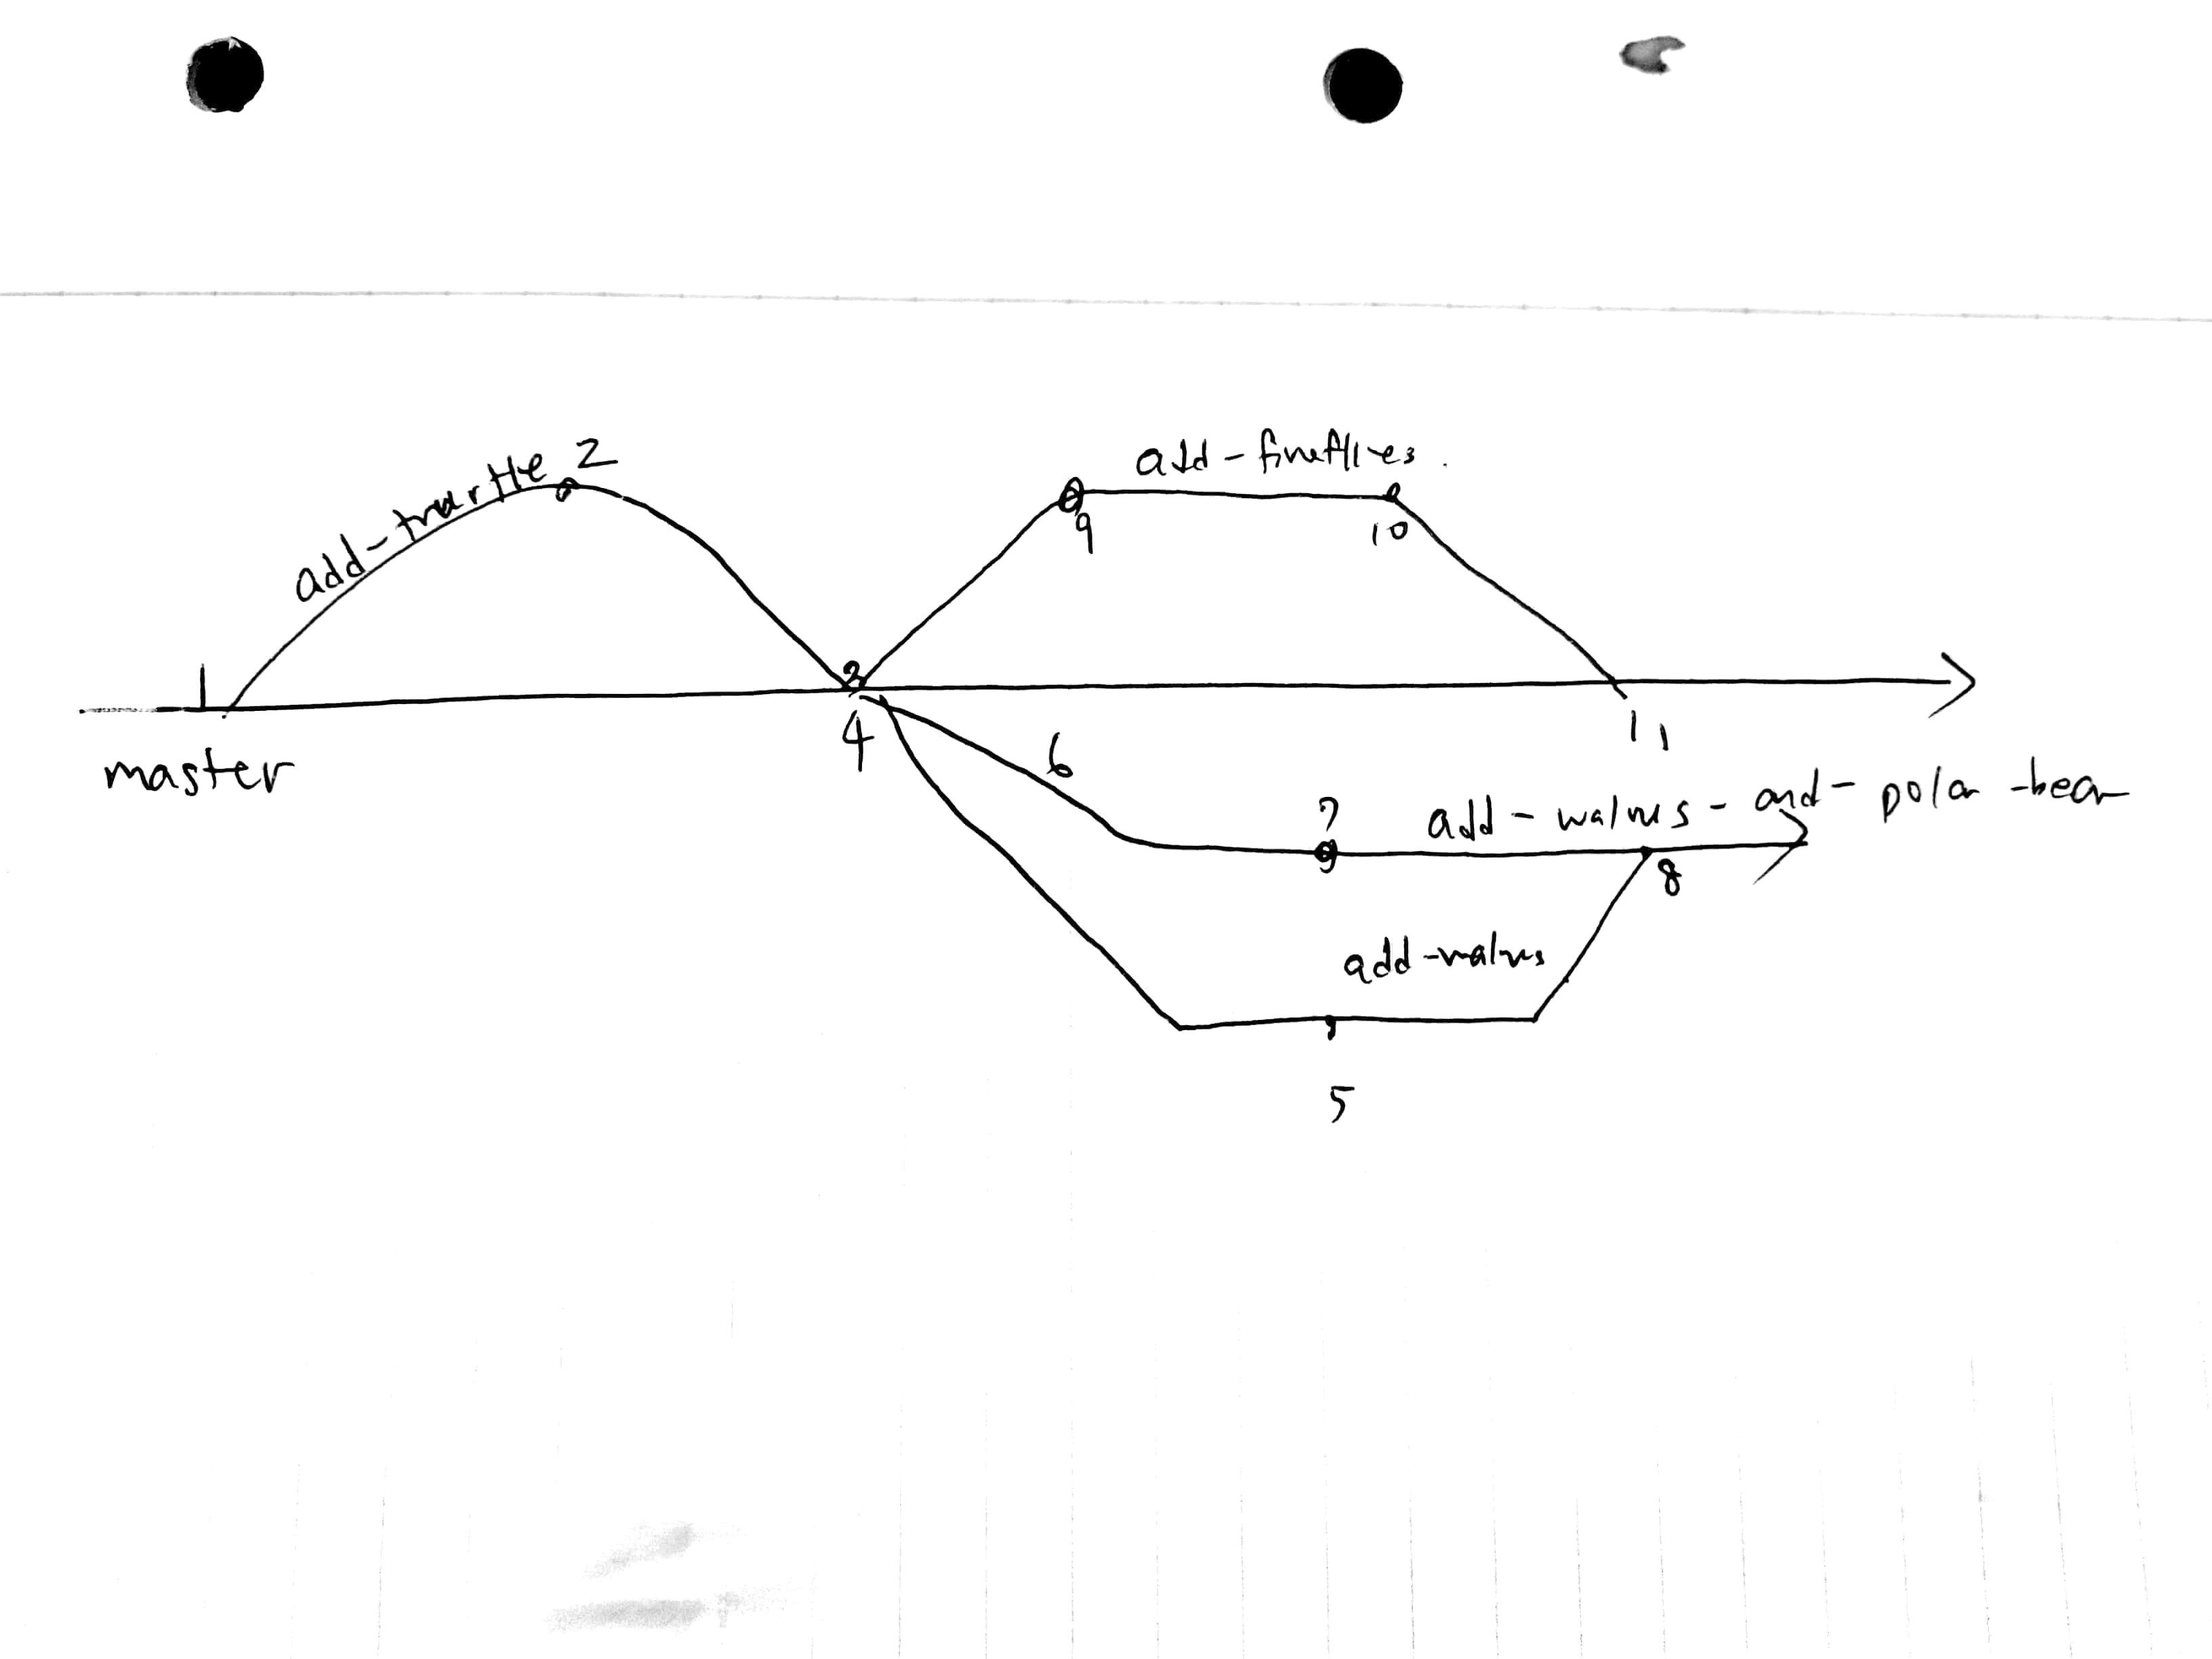 add-turtle 2
add-fireflies.
9
10
1
3
4
11
master
6
7
add - walrus - and - polar -bear
8
add-walrus
5